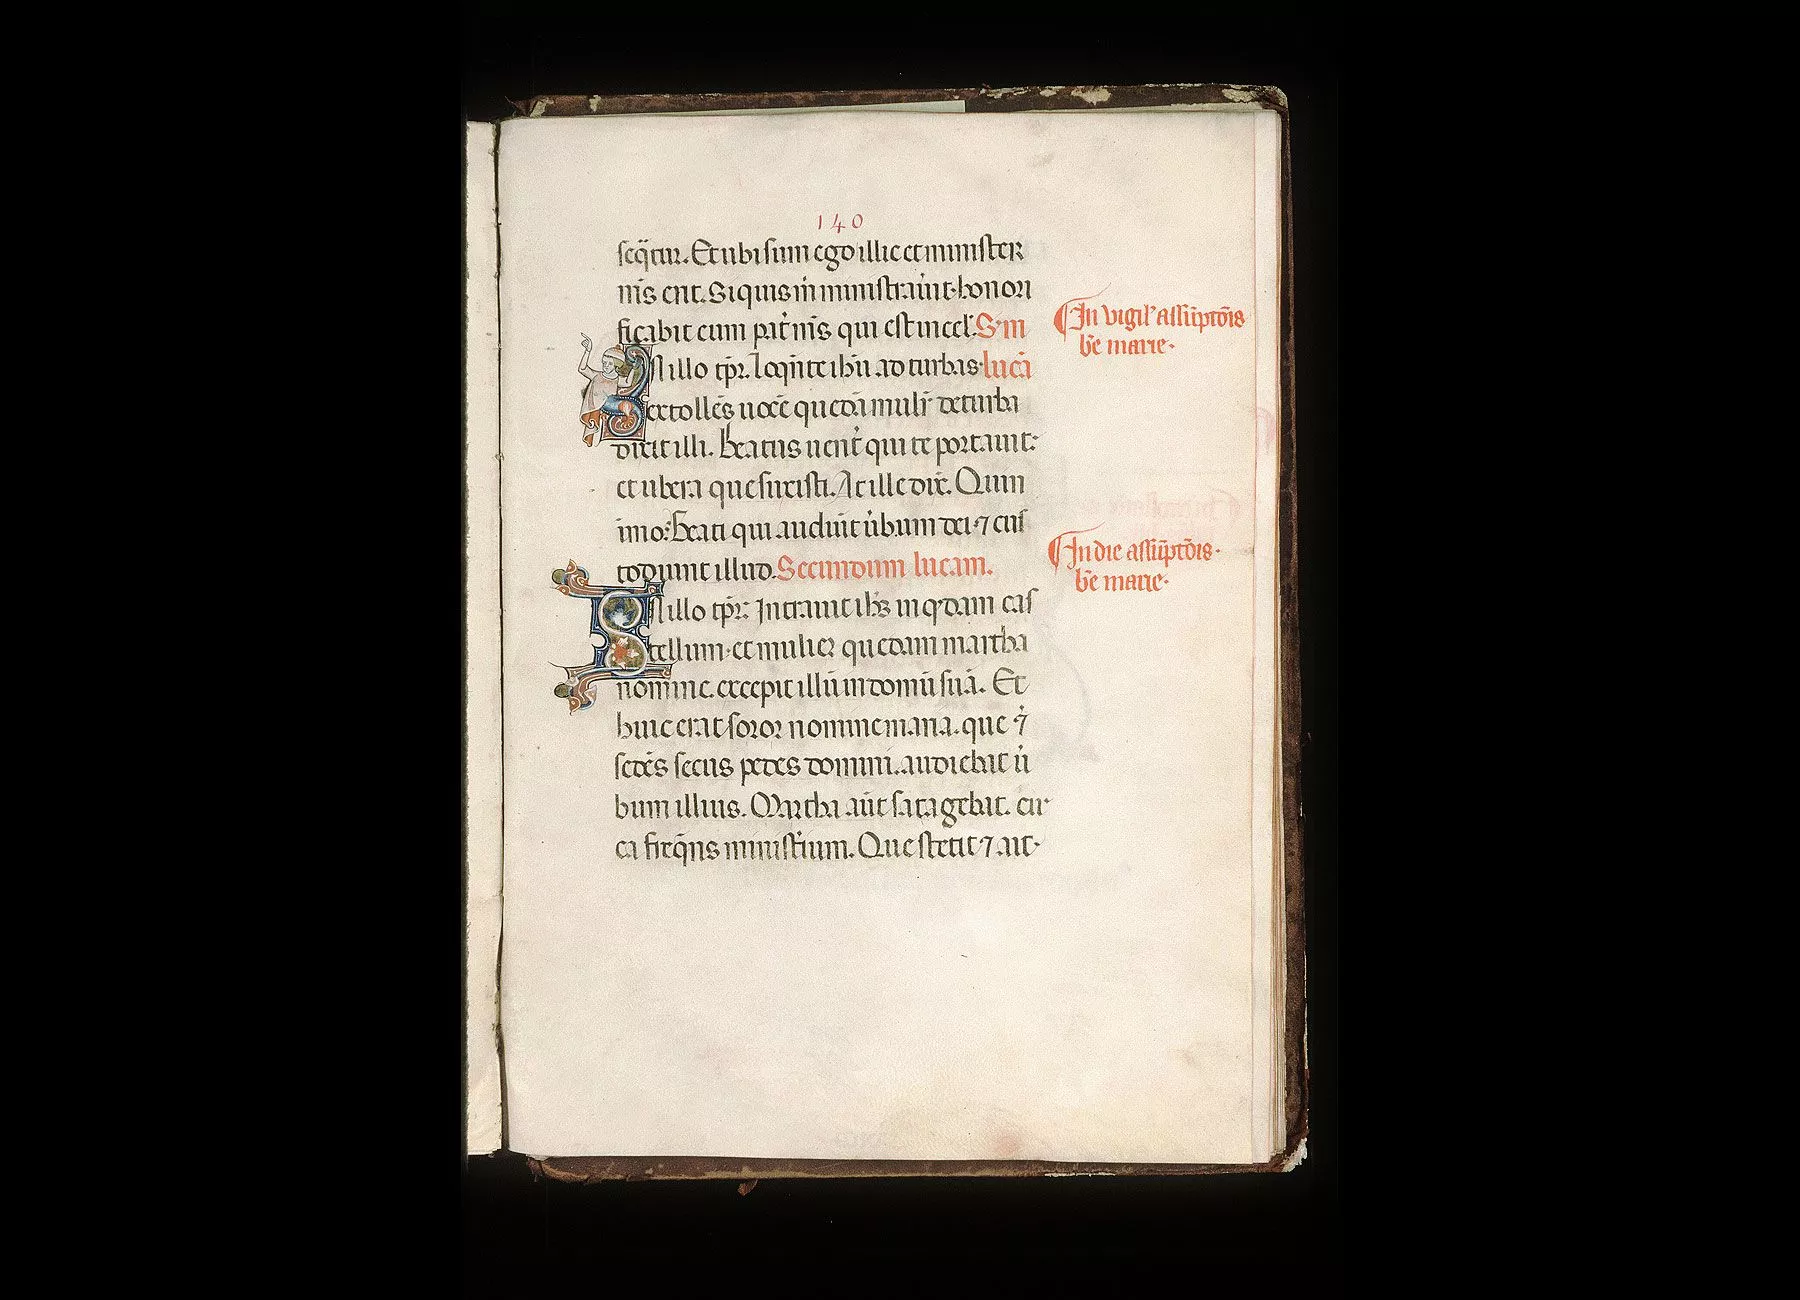 140
seq̄tur. Et ubi sum ego illic et minister
m̄s erit. Si quis ṁ ministrau̇it. honori
ficabit eum pat̉ m̄s qui est in cel̉. S̄m
In illo tp̄r. Loq̄nte ih̄u ad turbas. lucā
extollēs uocē quedā mulı̉ de turba
dixit illi. Beatus uent̉ qui te portauit:
et ubera que suxisti. At ille dix̄. Quin
imo: Beati qui audiūt u̇bum dei ⁊ cus
todiunt illud. Secundum lucam.
In illo tp̄r. Intrauit ih̄s in q̇dam cas
tellum. et mulier quedam martha
nomine. excepit illū in domū suā. Et
huic erat soror nomine maria. que ⁊̇
sedēs secus pedes domini. audiebat u̇
bum illius. Martha aūt satagebat. cir
ca freq̄ns minist̉ium. Que stetit ⁊ ait.
¶ In vigil̉ assūptōis
bē marie.
¶ In die assūptōis.
bē marie.